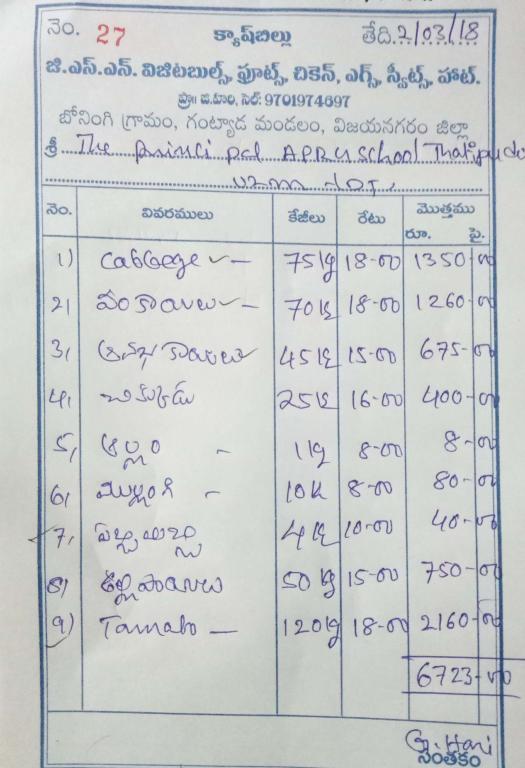 నెం. 27 క్యాష్‌బిల్లు తేది. 2/03/18
జి.ఎస్.ఎన్. విజిటబుల్స్, ఫ్రూట్స్, చికెన్, ఎగ్స్, స్వీట్స్, హాట్.
సెల్: 9701974697
బోనింగి గ్రామం, గంట్యాడ మండలం, విజయనగరం జిల్లా
శ్రీ The principal School
నెం. వివరములు కేజీలు రేటు మొత్తము
రూ. పై.
1) Cabbege - 75kg 18-00 1350-00
2) వంకాయలు - 70kg 18-00 1260-00
3) ఆనభకాయలు 45kg 15-00 675-00
4) చిక్కుడు 25kg 16-00 400-00
5) అల్లం - 1kg 8-00 8-00
6) ముల్లంగి - 10k 8-00 80-00
7) 4kg 10-00 40-00
8) ఉల్లిపాయలు 50kg 15-00 750-00
9) Tamato - 120kg 18-00 2160-00
6723-00
G. Hari
సంతకం